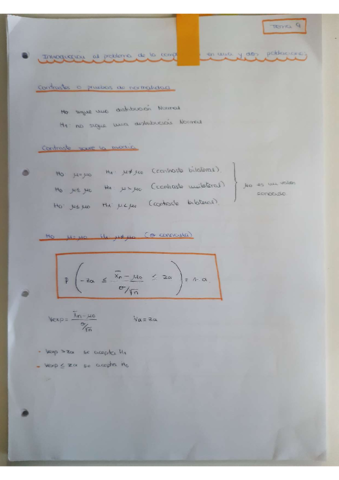 TEMA 4
Introducción al problema de la comparación de una y dos poblaciones
Contraste o pruebas de normalidad
H₀ sigue una distribución normal
H₁ no sigue una distribución normal
Contraste sobre la media
H₀ μ=μ₀ H₁ μ≠μ₀ (contraste bilateral)
H₀ μ≤μ₀ H₁ μ>μ₀ (contraste unilateral)
H₀ μ≥μ₀ H₁ μ<μ₀ (contraste bilateral)
μ₀ es un valor conocido
H₀ μ=μ₀ H₁ μ≠μ₀ (σ conocida)
P ( -zα ≤ x̄n - μ₀ / σ/√n ≤ zα ) = 1-α
texp = x̄n - μ₀ / σ/√n tα = zα
- texp > zα se acepta H₁
- texp ≤ zα se acepta H₀